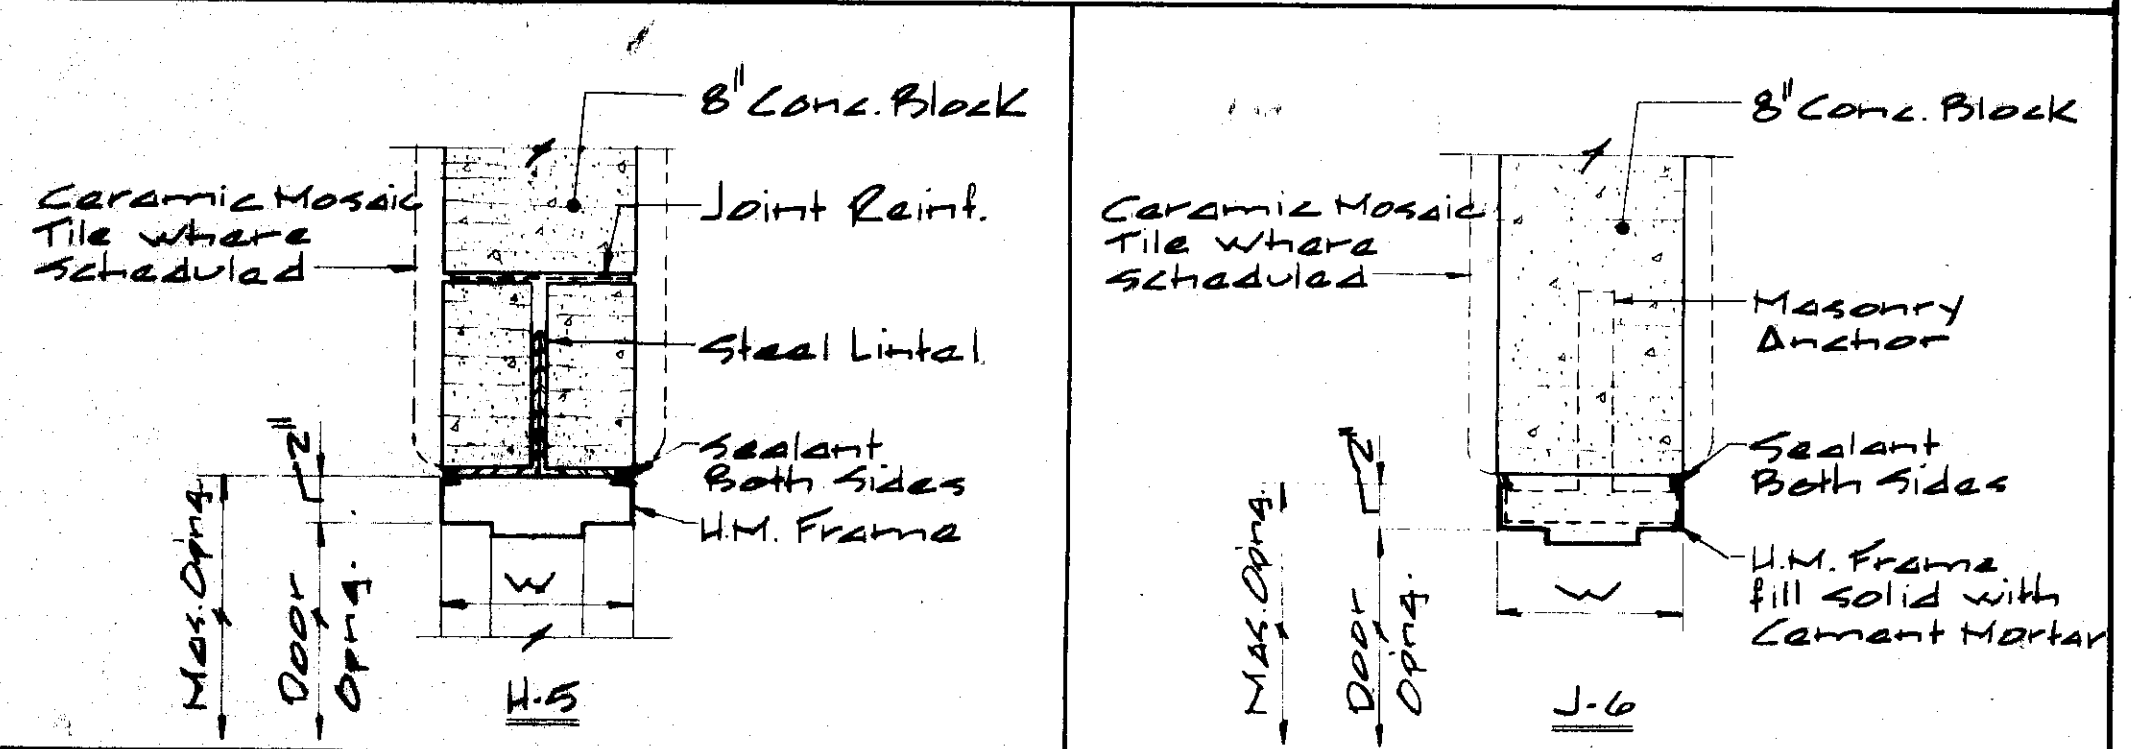 8" Conc. Block
Ceramic Mosaic
Tile where
scheduled
Joint Reinf.
Steel Lintel
Sealant
Both Sides
H.M. Frame
2"
Mas. Opng.
Door
Opng.
W
H-5
8" Conc. Block
Ceramic Mosaic
Tile where
scheduled
Masonry
Anchor
Sealant
Both Sides
H.M. Frame
fill solid with
Cement Mortar
2"
Mas. Opng.
Door
Opng.
W
J-6